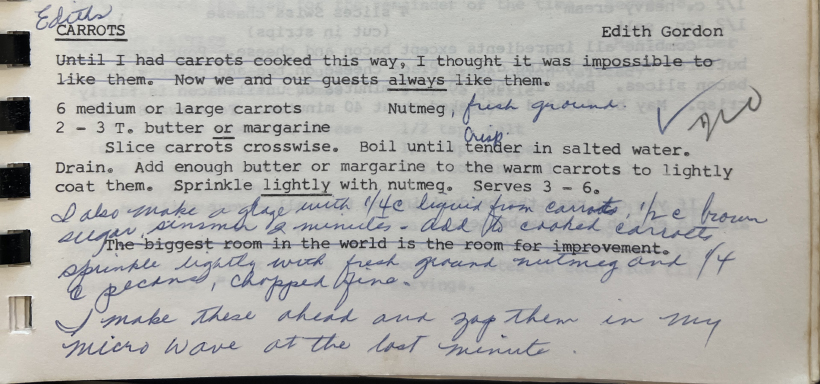 Ediths
CARROTS Edith Gordon
Until I had carrots cooked this way, I thought it was impossible to
like them. Now we and our guests always like them.
6 medium or large carrots Nutmeg, fresh ground.
2 - 3 T. butter or margarine
Crisp
Slice carrots crosswise. Boil until tender in salted water.
Drain. Add enough butter or margarine to the warm carrots to lightly
coat them. Sprinkle lightly with nutmeg. Serves 3 - 6.
I also make a glaze with 1/4 C liquid from carrots, 1/2 c brown
sugar, simmer 2 minutes - add to cooked carrots
The biggest room in the world is the room for improvement.
sprinkle lightly with fresh ground nutmeg and 1/4
c pecans, chopped fine.
I make these ahead and zap them in my
micro wave at the last minute.